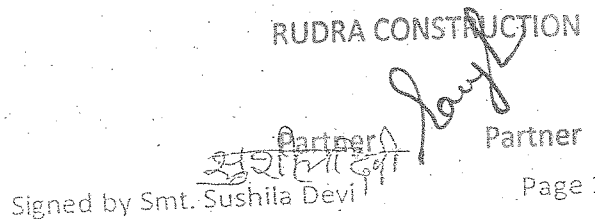 RUDRA CONSTRUCTION
Partner Partner
सुशीला देवी
Signed by Smt. Sushila Devi Page 1